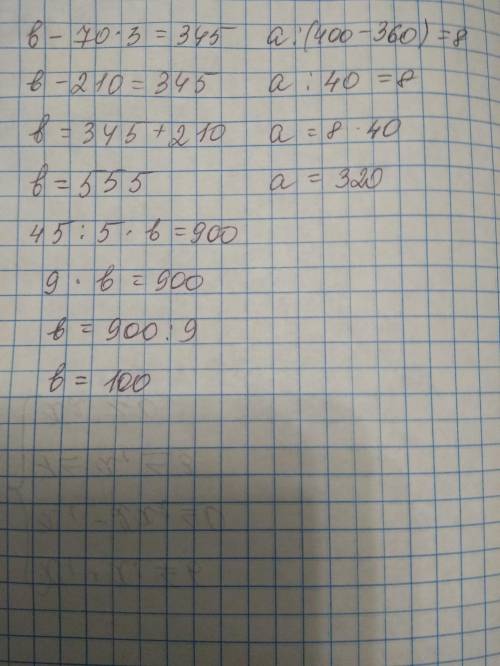 в - 70 · 3 = 345
в - 210 = 345
в = 345 + 210
в = 555
45 : 5 · в = 900
9 · в = 900
в = 900 : 9
в = 100
а : (400 - 360) = 8
а : 40 = 8
а = 8 · 40
а = 320